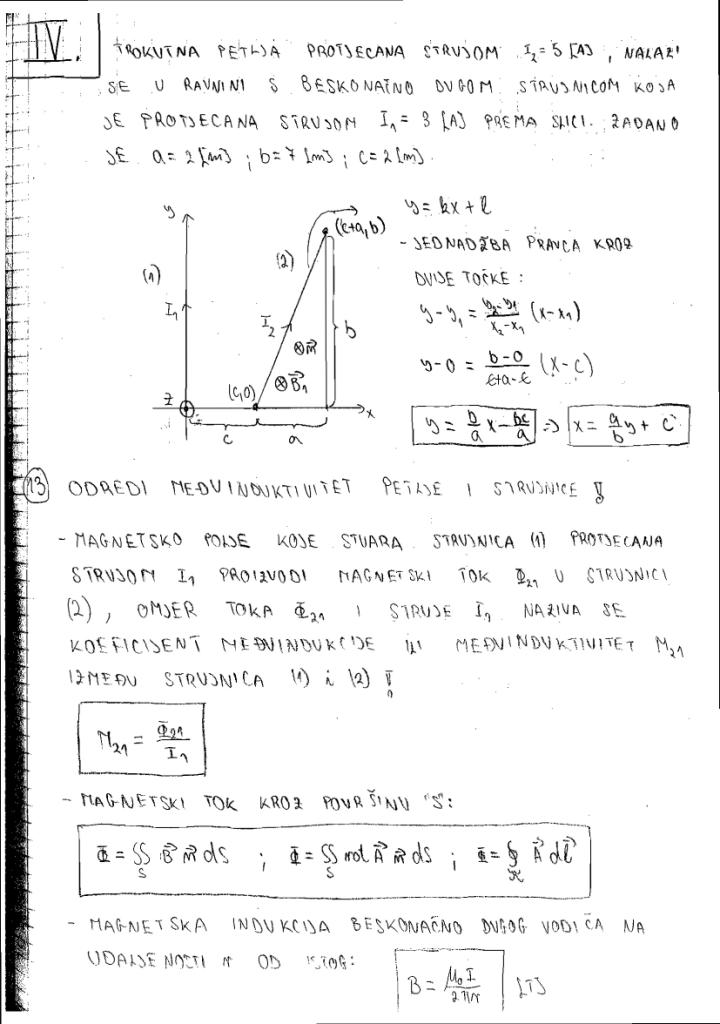 IV.
TROKUTNA PETLJA PROTJECANA STRUJOM I₂ = 5 [A] , NALAZI
SE U RAVNINI S BESKONAČNO DUGOM STRUJNICOM KOJA
JE PROTJECANA STRUJOM I₁ = 3 [A] PREMA SLICI. ZADANO
JE a = 2 [m] ; b = 7 [m] ; c = 2 [m].
y
(1)
I₁
(2)
I₂
(c+a, b)
b
⊗ n⃗
⊗ B⃗₁
(c,0)
z
x
c
a
y = kx + l
- JEDNADŽBA PRAVCA KROZ
DVIJE TOČKE :
y - y₁ = \frac{y₂ - y₁}{x₂ - x₁} (x - x₁)
y - 0 = \frac{b - 0}{c + a - c} (x - c)
y = \frac{b}{a} x - \frac{bc}{a} ⇒ x = \frac{a}{b} y + c
13 ODREDI MEĐUINDUKTIVITET PETLJE I STRUJNICE !
- MAGNETSKO POLJE KOJE STVARA STRUJNICA (1) PROTJECANA
STRUJOM I₁ PROIZVODI MAGNETSKI TOK Φ₂₁ U STRUJNICI
(2) , OMJER TOKA Φ₂₁ I STRUJE I₁ NAZIVA SE
KOEFICIJENT MEĐUINDUKCIJE ILI MEĐUINDUKTIVITET M₂₁
IZMEĐU STRUJNICA (1) i (2) !
M₂₁ = \frac{Φ₂₁}{I₁}
- MAGNETSKI TOK KROZ POVRŠINU "S":
Φ = ∬_S B⃗ n⃗ dS ; Φ = ∬_S rot A⃗ n⃗ dS ; Φ = ∮ A⃗ dl⃗
- MAGNETSKA INDUKCIJA BESKONAČNO DUGOG VODIČA NA
UDALJENOSTI r OD ISTOG: B = \frac{μ₀ I}{2πr} [T]